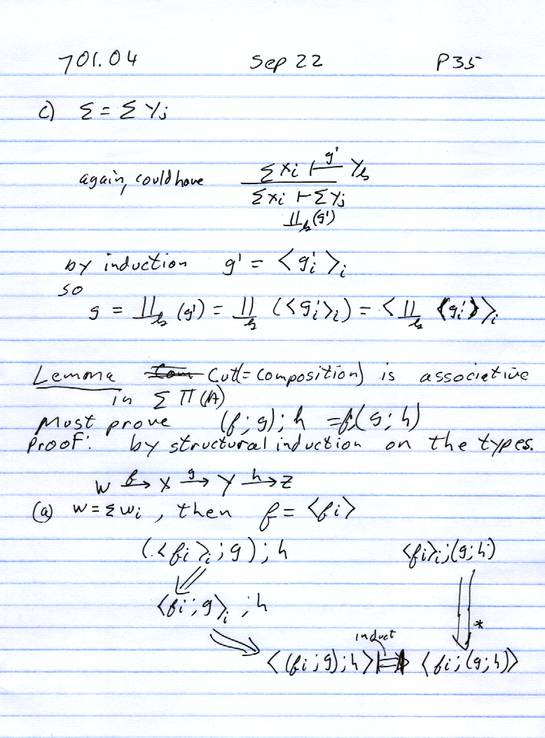 701.04 Sep 22 P35
c) Σ = Σ Yj
again, could have Σ Xi ⊢^g' Yk
Σ Xi ⊢ Σ Yj
∐k (g')
by induction g' = ⟨g'i⟩i
so
g = ∐k (g') = ∐k (⟨g'i⟩i) = ⟨∐k (g'i)⟩i
Lemma Cut(=composition) is associative
in Σ Π (A)
Must prove (f; g); h = f;(g; h)
Proof: by structural induction on the types.
W –f→ X –g→ Y –h→ Z
(a) W = Σ Wi, then f = ⟨fi⟩
(⟨fi⟩i; g); h ⟨fi⟩i; (g; h)
⟨fi; g⟩i ; h *
induct
⟨(fi; g); h⟩ ⟹ ⟨fi; (g; h)⟩